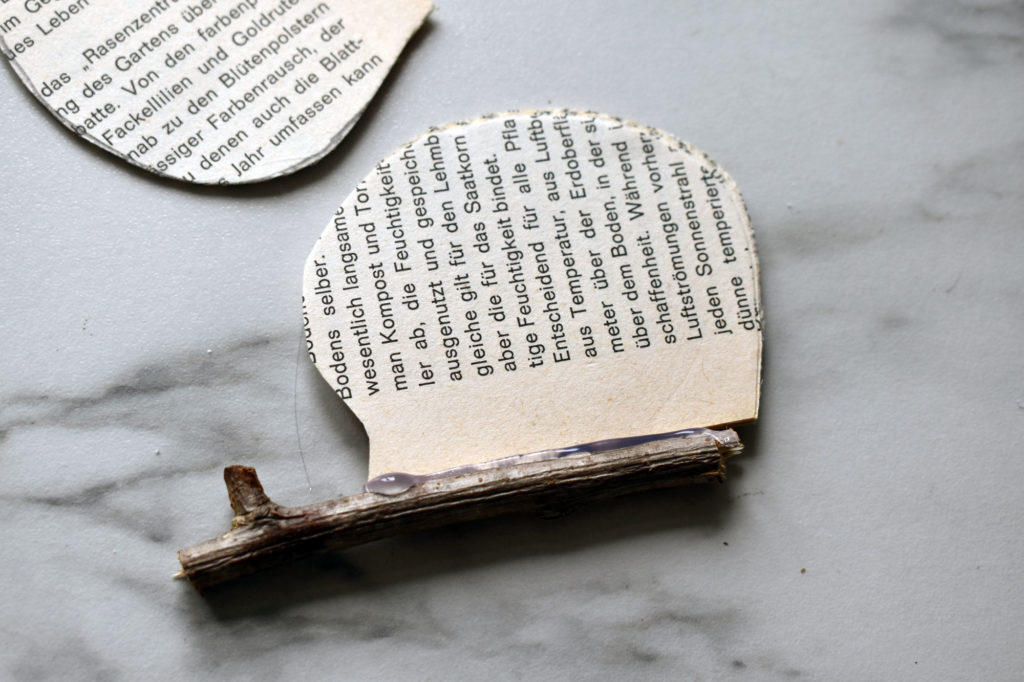 des Leben
das „Rasenzentr
ng des Gartens übe
atte. Von den farbenp
Fackellilien und Goldrute
ab zu den Blütenpolstern
ssiger Farbenrausch, der
denen auch die Blatt-
Jahr umfassen kann
Bodens selber.
wesentlich langsame
man Kompost und Tor
ler ab, die Feuchtigkeit
ausgenutzt und gespeich
gleiche gilt für den Lehmb
aber die für das Saatkorn
tige Feuchtigkeit bindet.
Entscheidend für alle Pfla
aus Temperatur, aus Luftb
meter über der Erdoberflä
über dem Boden, in der
schaffenheit. Während
Luftströmungen vorher
jeden Sonnenstrahl
dünne temperier